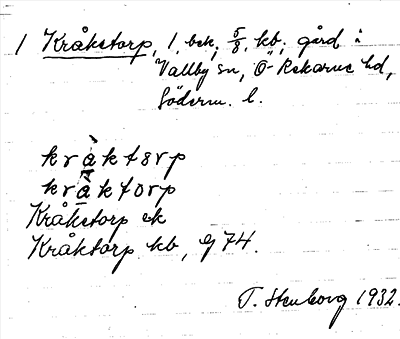 1 Kråkstorp, 1, bek, 5/8, kb, gård i
Vallby sn, Ö-Rekarne hd,
Söderm. l.
kràktorp
kråktorp
Kråkstorp ek
Kråktorp kb, g 74.
T. Stenborg 1932.